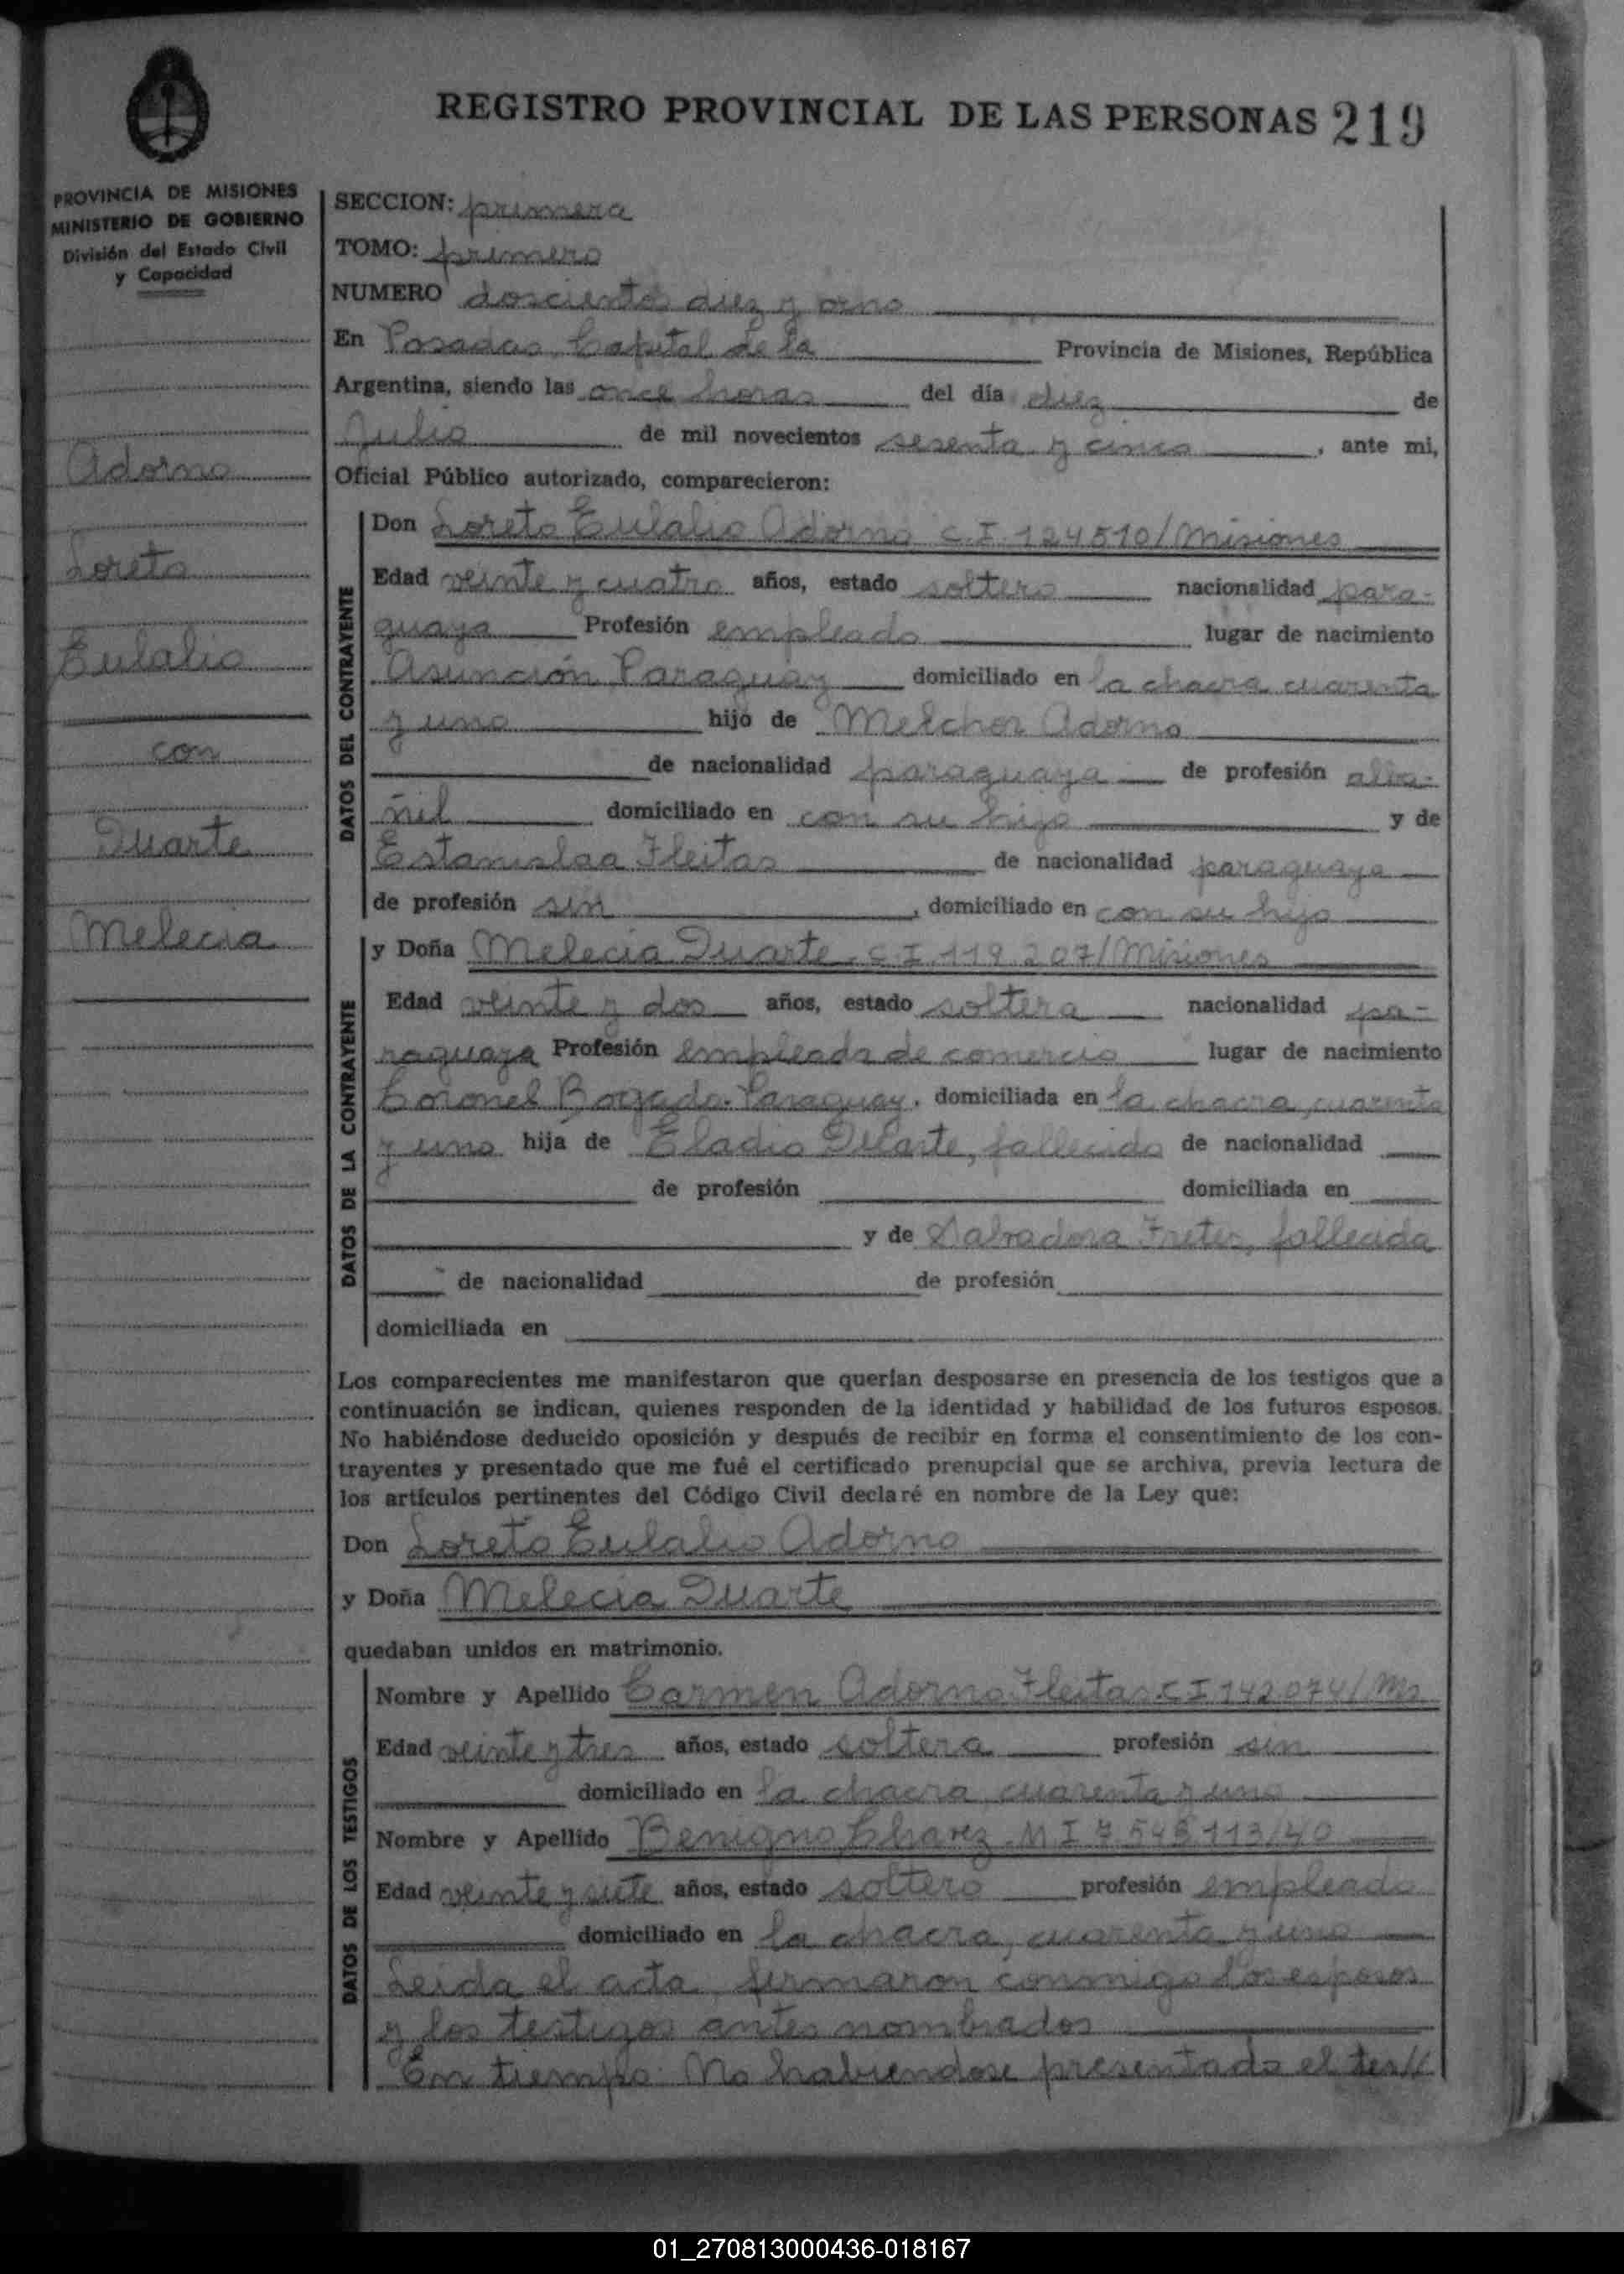 REGISTRO PROVINCIAL DE LAS PERSONAS 219
PROVINCIA DE MISIONES
MINISTERIO DE GOBIERNO
División del Estado Civil
y Capacidad
Adorno
Loreto
Eulalio
con
Duarte
Melecia
SECCION: primera
TOMO: primero
NUMERO doscientos diez y
En Posadas, Capital de la Provincia de Misiones, República
Argentina, siendo las once horas del día diez de
Julio de mil novecientos sesenta y cinco, ante mi,
Oficial Público autorizado, comparecieron:
DATOS DEL CONTRAYENTE
Don Loreto Eulalio Adorno C.I. 124510/Misiones
Edad veinte y cuatro años, estado soltero nacionalidad para-
guaya Profesión empleado lugar de nacimiento
Asunción, Paraguay domiciliado en la chacra cuarenta
y uno hijo de Melchor Adorno
de nacionalidad paraguaya de profesión alba-
ñil domiciliado en con su hijo y de
Estanislaa Fleitas de nacionalidad paraguaya
de profesión sin, domiciliado en con su hijo
DATOS DE LA CONTRAYENTE
y Doña Melecia Duarte C.I. 119.207/Misiones
Edad veinte y dos años, estado soltera nacionalidad pa-
raguaya Profesión empleada de comercio lugar de nacimiento
Coronel Bogado. Paraguay, domiciliada en la chacra cuarenta
y uno hija de Eladio Duarte, fallecido de nacionalidad
de profesión domiciliada en
y de Salvadora Fretes, fallecida
de nacionalidad de profesión
domiciliada en
Los comparecientes me manifestaron que querían desposarse en presencia de los testigos que a
continuación se indican, quienes responden de la identidad y habilidad de los futuros esposos.
No habiéndose deducido oposición y después de recibir en forma el consentimiento de los con-
trayentes y presentado que me fué el certificado prenupcial que se archiva, previa lectura de
los artículos pertinentes del Código Civil declaré en nombre de la Ley que:
Don Loreto Eulalio Adorno
y Doña Melecia Duarte
quedaban unidos en matrimonio.
DATOS DE LOS TESTIGOS
Nombre y Apellido Carmen Adorno Fleitas C I 142.074/Ms
Edad veinte y tres años, estado soltera profesión sin
domiciliado en la chacra, cuarenta y uno
Nombre y Apellido Benigno Chavez M I 7 548 113/40
Edad veinte y siete años, estado soltero profesión empleado
domiciliado en la chacra, cuarenta y uno
Leida el acta, firmaron conmigo los esposos
y los testigos antes nombrados
En tiempo: No habiendose presentado el tes//
01_270813000436-018167